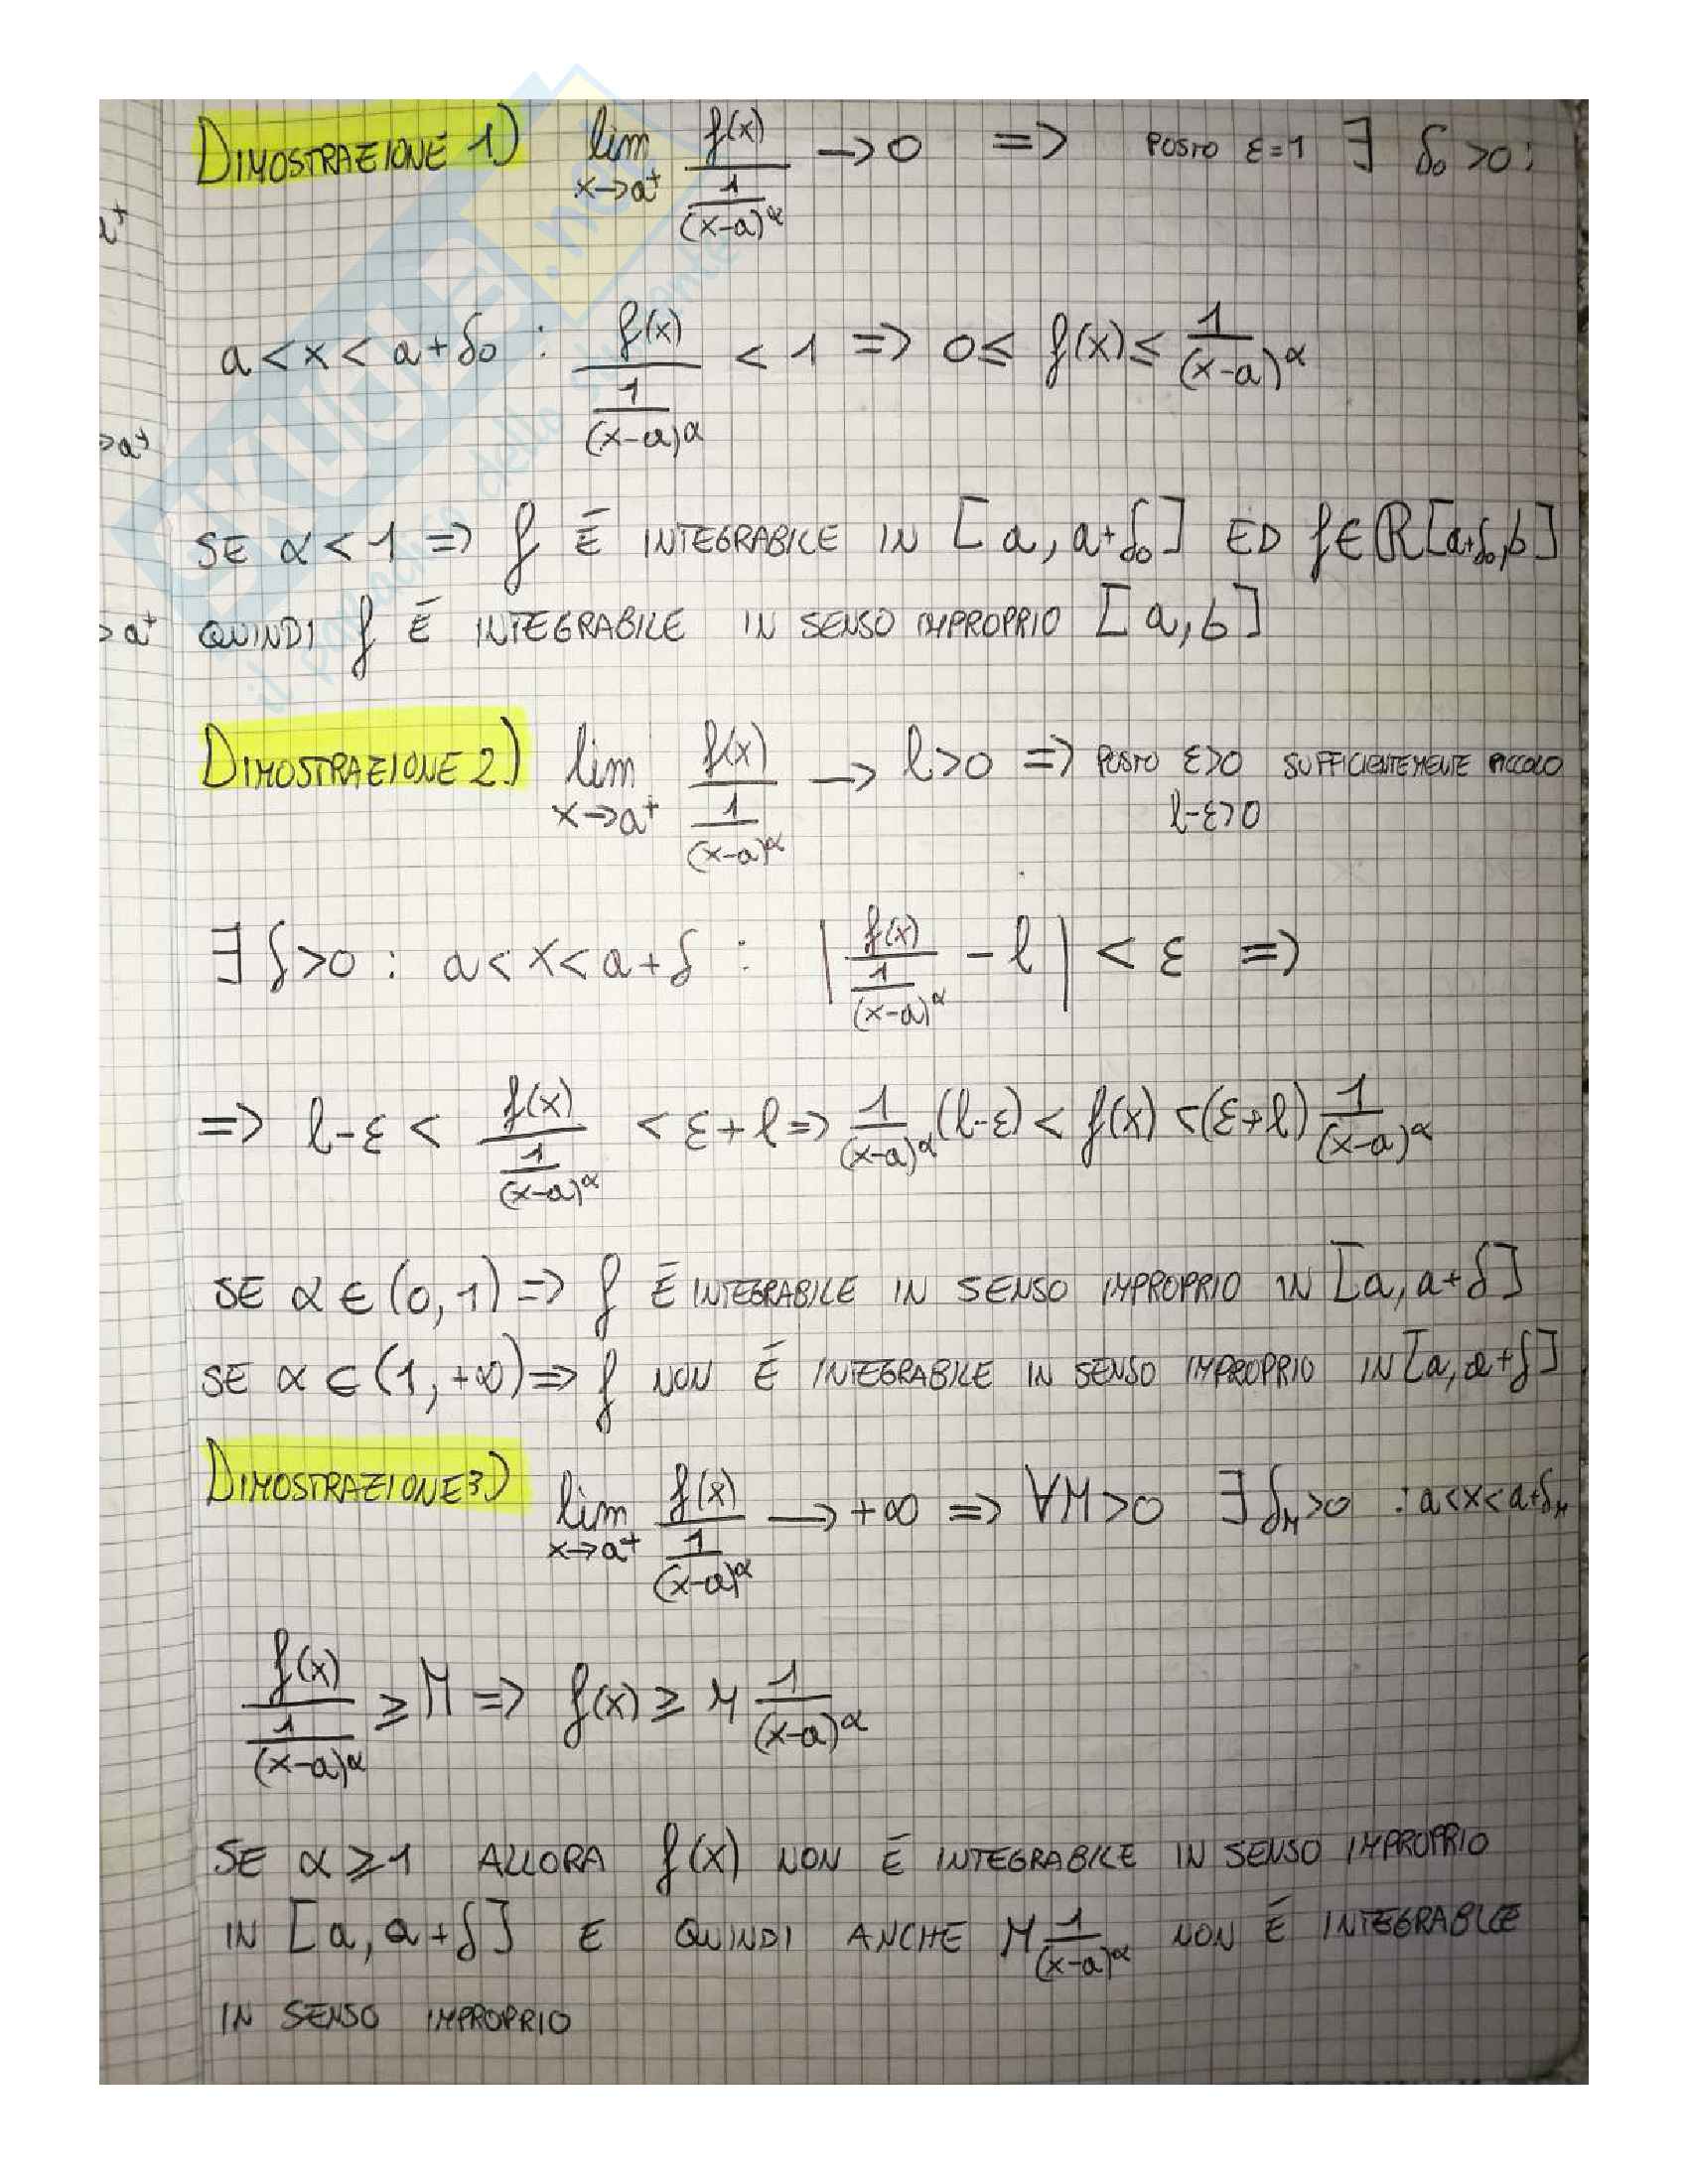 DIMOSTRAZIONE 1) lim x→a⁺ f(x) / (1/(x-a)^α) → 0 => POSTO ε=1 ∃ δ₀ >0 :
a⁺
a<x<a+δ₀ : f(x) / (1/(x-a)^α) < 1 => 0≤ f(x) ≤ 1/(x-a)^α
>a⁺
SE α<1 => f É INTEGRABILE IN [a, a+δ₀] ED f∈R[a+δ₀,b]
>a⁺
QUINDI f É INTEGRABILE IN SENSO IMPROPRIO [a,b]
DIMOSTRAZIONE 2) lim x→a⁺ f(x) / (1/(x-a)^α) → l>0 => POSTO ε>0 SUFFICIENTEMENTE PICCOLO
l-ε>0
∃ δ>0 : a<x<a+δ : | f(x) / (1/(x-a)^α) - l | < ε =>
=> l-ε < f(x) / (1/(x-a)^α) < ε+l => 1/(x-a)^α (l-ε) < f(x) <(ε+l) 1/(x-a)^α
SE α∈(0,1) => f É INTEGRABILE IN SENSO IMPROPRIO IN [a, a+δ]
SE α∈(1,+∞) => f NON É INTEGRABILE IN SENSO IMPROPRIO IN [a, a+δ]
DIMOSTRAZIONE 3) lim x→a⁺ f(x) / (1/(x-a)^α) → +∞ => ∀M>0 ∃ δ_M>0 : a<x<a+δ_M
f(x) / (1/(x-a)^α) ≥ M => f(x) ≥ M 1/(x-a)^α
SE α≥1 ALLORA f(x) NON É INTEGRABILE IN SENSO IMPROPRIO
IN [a, a+δ] E QUINDI ANCHE M 1/(x-a)^α NON É INTEGRABILE
IN SENSO IMPROPRIO
SKUOLA.net
il paradiso dello studente